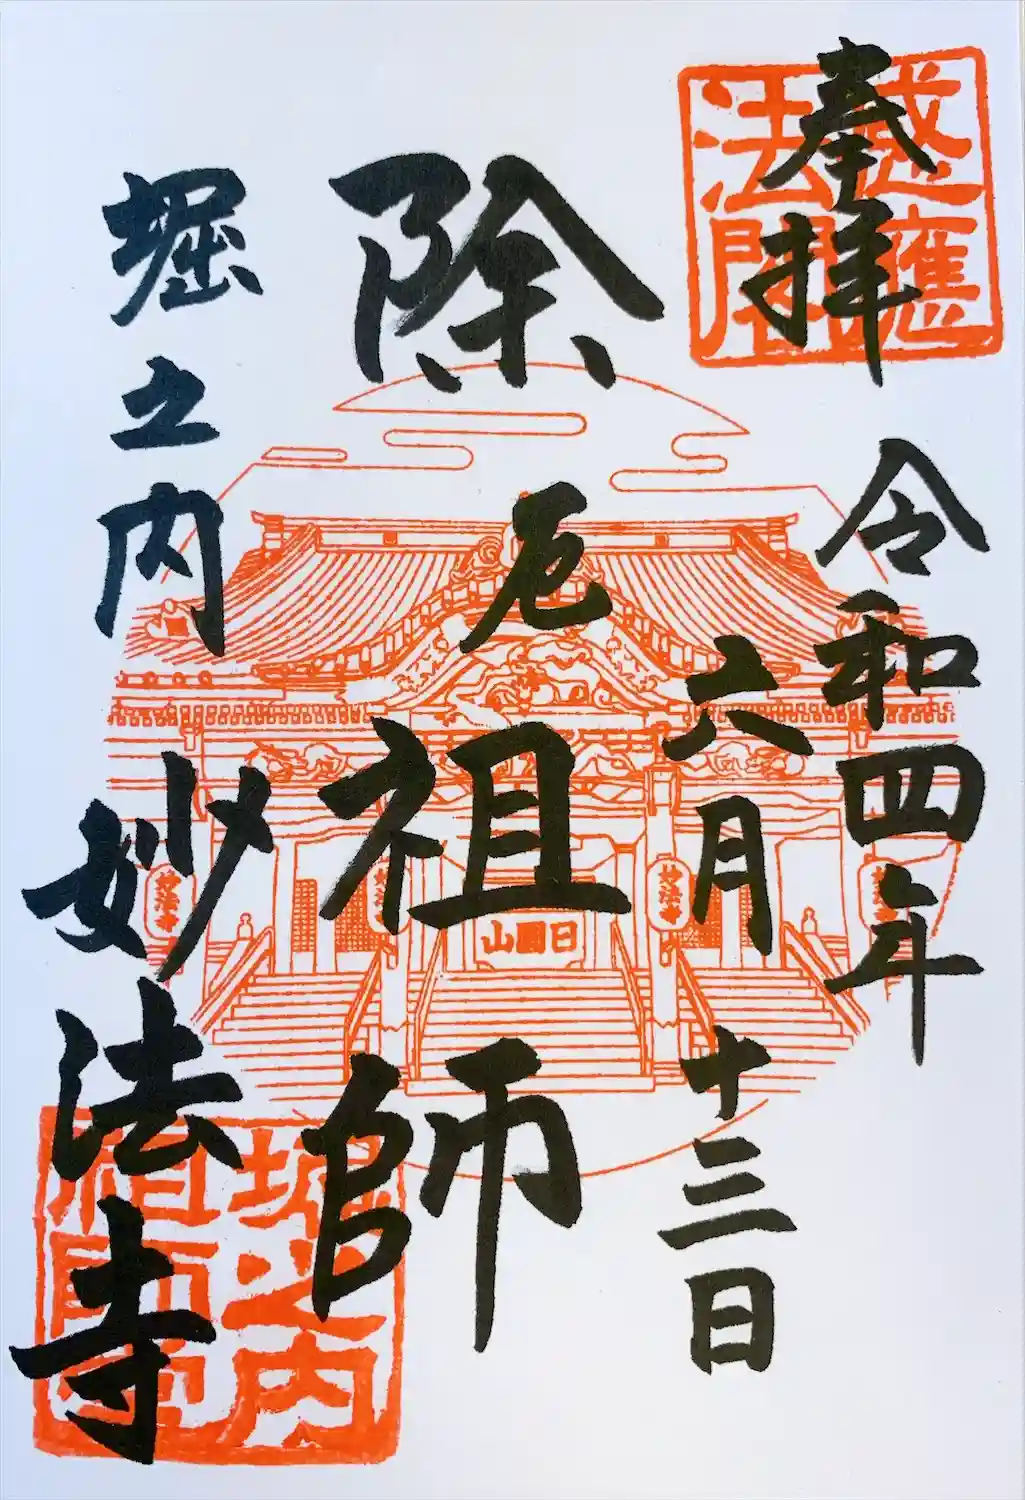 奉拝
令和四年
六月十三日
除厄祖師
堀之内
妙法寺
感應
法閣
日圓山
妙法寺
妙法寺
堀之内
祖師堂